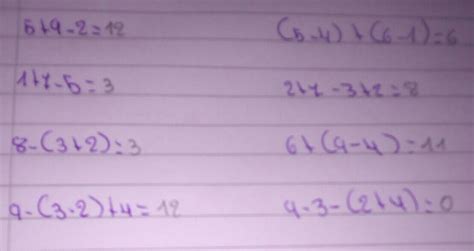 5+9-2=12 (5-4)+(6-1)=6
1+7-5=3 2+7-3+2=8
8-(3+2)=3 6+(9-4)=11
9-(3-2)+4=12 9-3-(2+4)=0